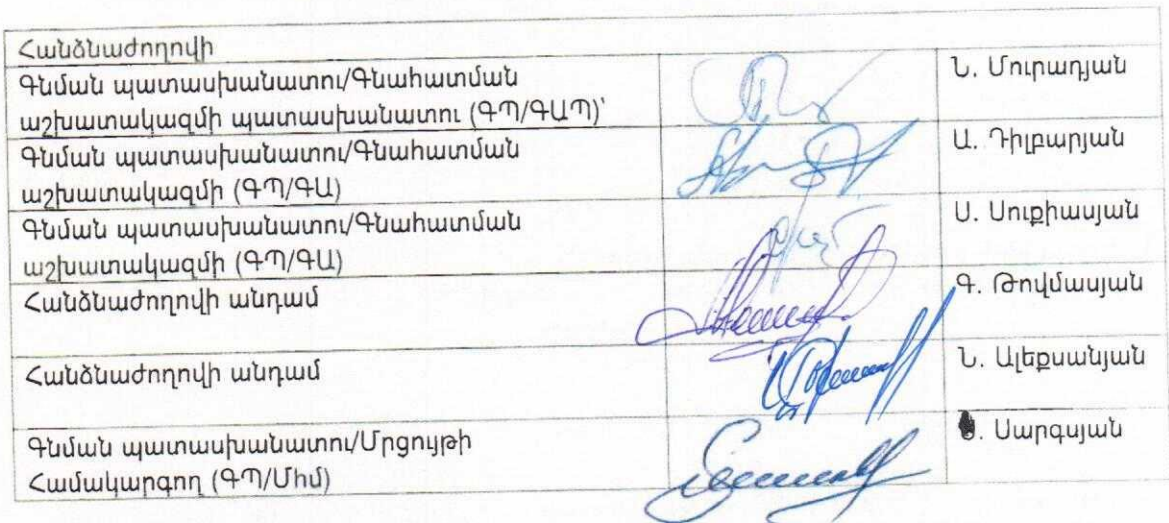 Հանձնաժողովի
Գնման պատասխանատու/Գնահատման
աշխատակազմի պատասխանատու (ԳՊ/ԳԱՊ)՝
Ն. Մուրադյան
Գնման պատասխանատու/Գնահատման
աշխատակազմի (ԳՊ/ԳԱ)
Ա. Դիլբարյան
Գնման պատասխանատու/Գնահատման
աշխատակազմի (ԳՊ/ԳԱ)
Ս. Սուքիասյան
Հանձնաժողովի անդամ
Գ. Թովմասյան
Հանձնաժողովի անդամ
Ն. Ալեքսանյան
Գնման պատասխանատու/Մրցույթի
Համակարգող (ԳՊ/Մհմ)
Սարգսյան